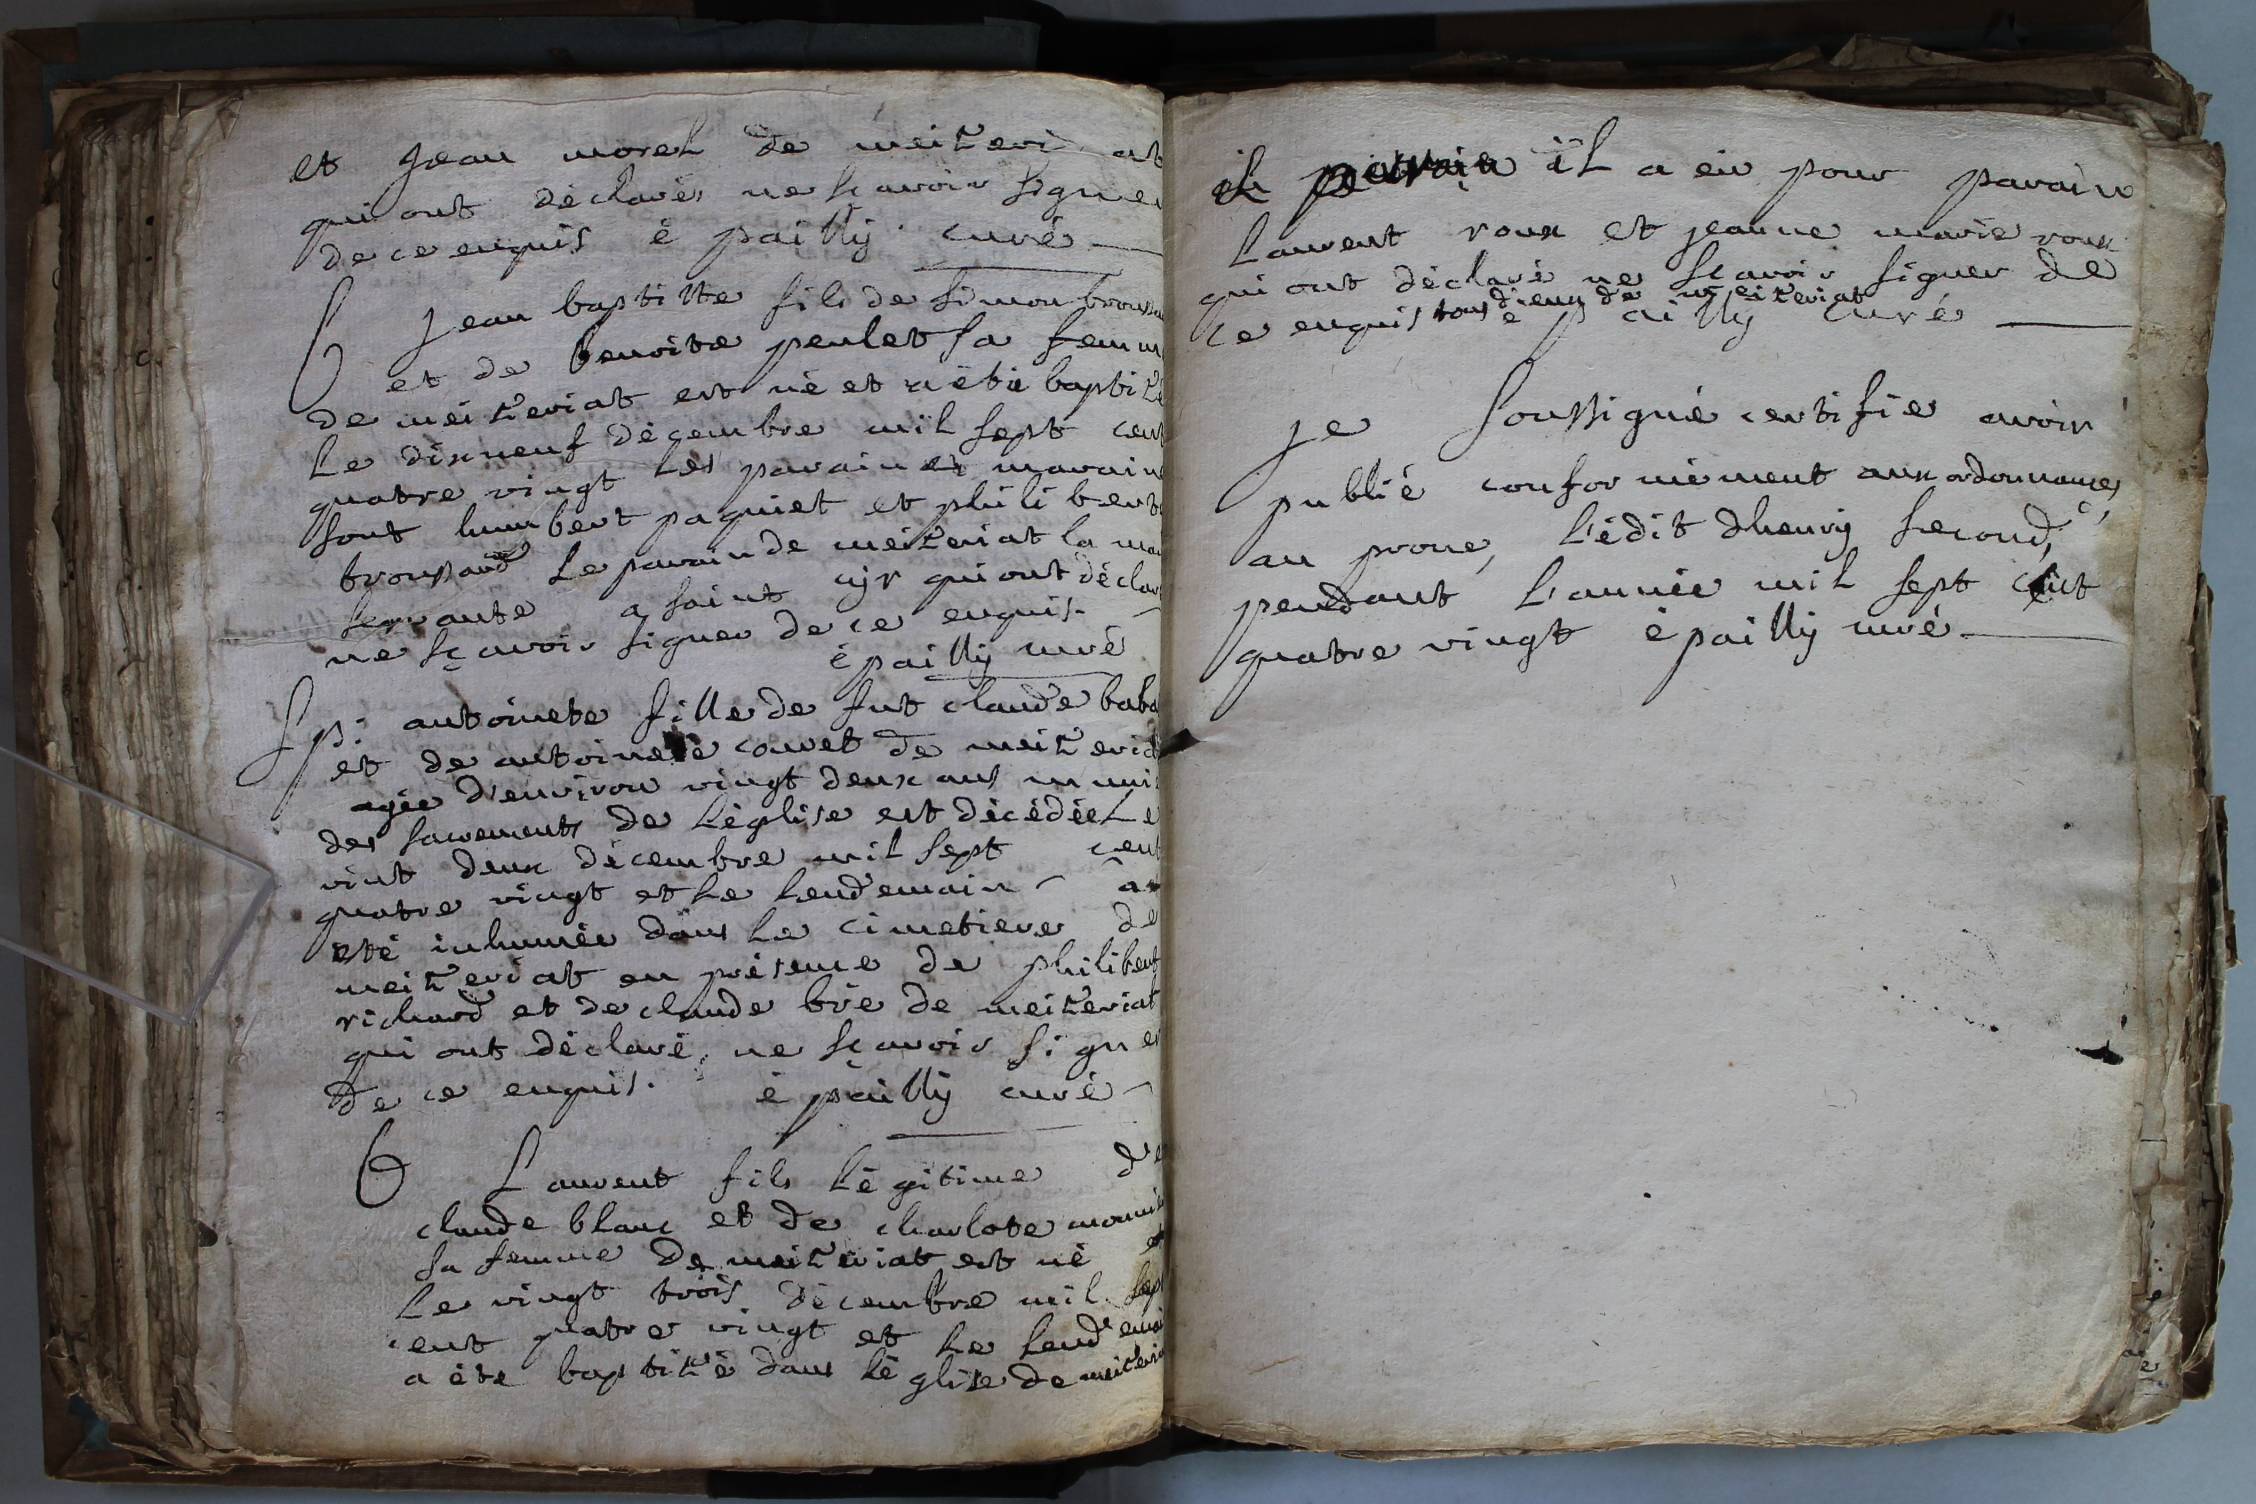 et Jean morel de meizeriat
qui ont déclarés ne sçavoir signer
de ce enquis é pailly curé
b jean baptiste fils de simon broussan
et de benoite penlet sa femm
de meizeriat est né et a été baptizé
le dixneuf décembre mil sept cent
quatre vingt les parain et maraine
sont humbert paquiet et philiberte
broussand le parain de meizeriat la mar
servante a saint cyr qui ont déclar
ne sçavoir signer de ce enquis.
é pailly curé
Sp. antoinete fille de fut claude baba
et de antoinete couvet de meizeriat
agée d'environ vingt deux ans munie
des sacrements de l'église est décédée le
vint deux décembre mil sept cent
quatre vingt et le lendemain a
eté inhumée dans le cimetiere de
meizeriat en présence de philibert
richard et de claude bré de meizeriat
qui ont déclaré, ne sçavoir signer
de ce enquis. é pailly curé
b Laurent fils légitime de
claude blanc et de charlote monnie
sa femme de meizeriat est né et
le vingt trois décembre mil sept
cent quatre vingt et le lendemai
a éte baptizé dans l'église de meizeria
il a eu pour parain
laurent roux et jeanne marie roux
qui ont déclaré ne sçavoir signer de
ce enquis tous deux de meizeriat é pailly curé
je soussigné certifie avoir
publié conformément aux ordonnances,
au prone, l'édit dhenry second,
pendant l'année mil sept cent
quatre vingt é pailly curé